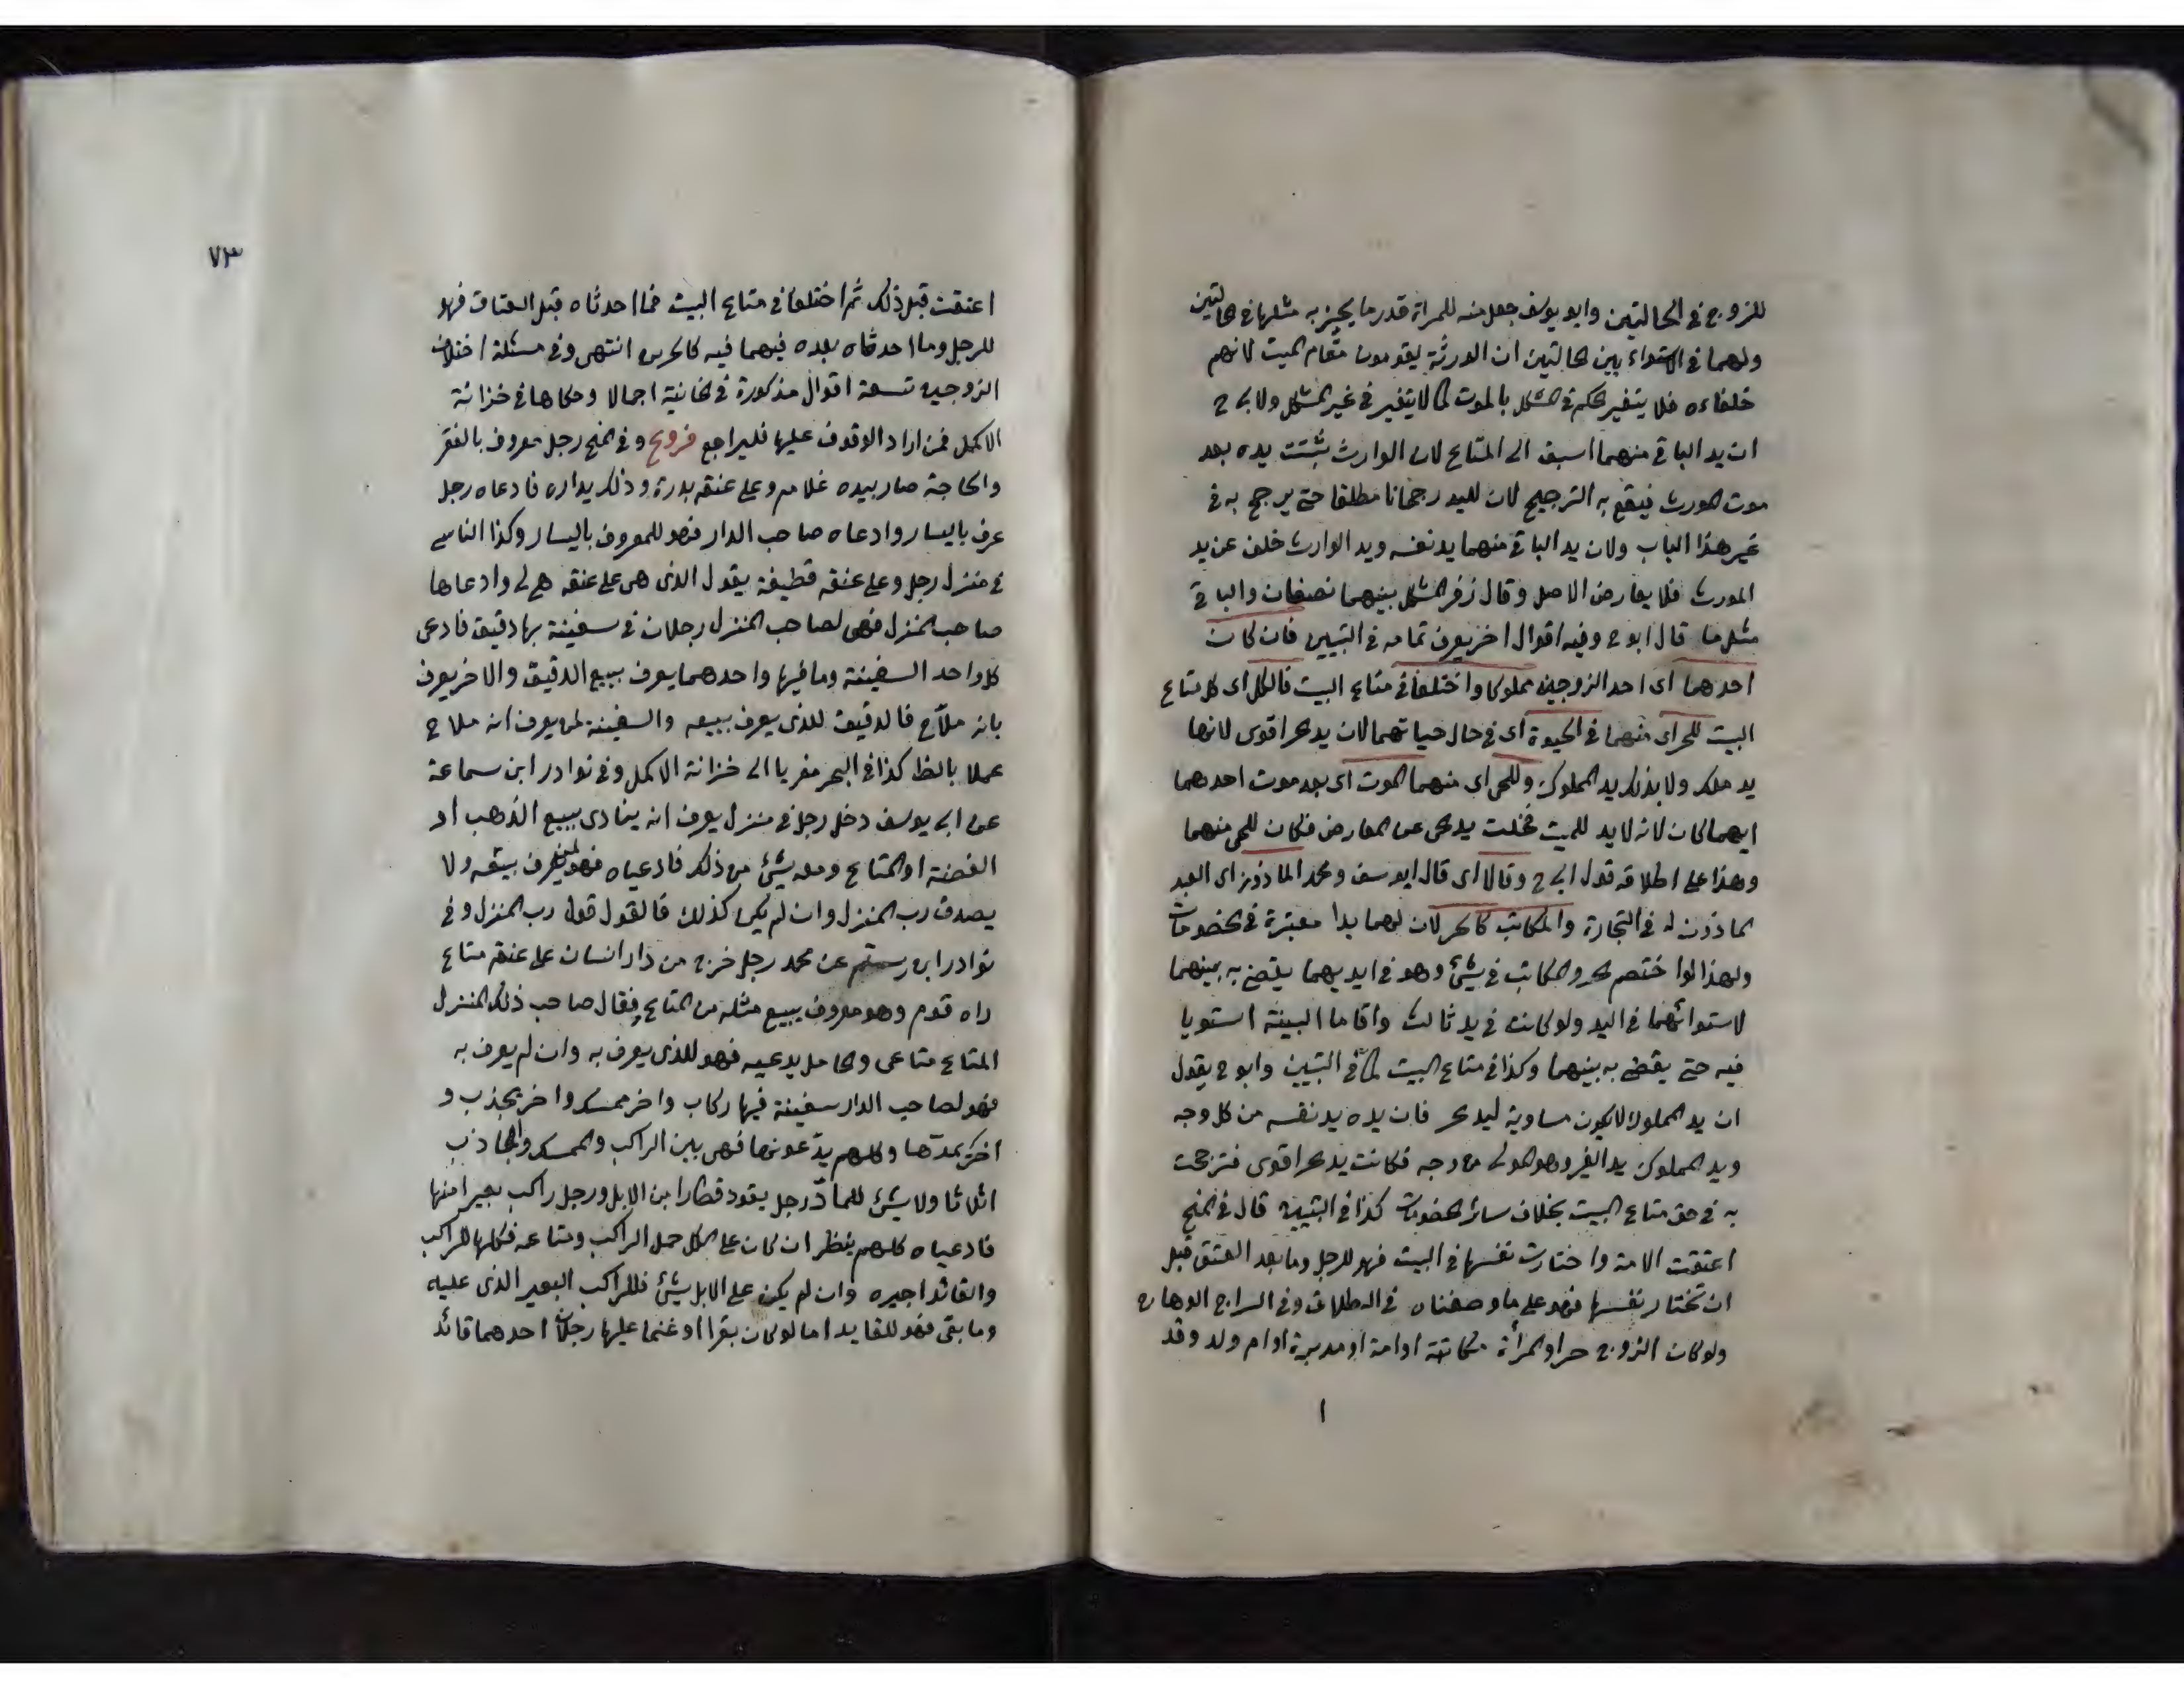 للزوج في الحالتين وابو يوسف جعل منه للمراة قدر ما يجهز به مثلها في الحالتين
ولهما في الاستواء بين الحالتين ان الورثة يقومون مقام الميت لانهم
خلفاءه فلا يتغير الحكم في المشكل بالموت كما لا يتغير في غير المشكل ولابي ح
ان يد الباقي منهما اسبق الى المتاع لان الوارث تثبتت يده بعد
موت المورث فيقع به الترجيح لان لليد رجحانا مطلقا حتى يرجح به في
غير هذا الباب ولان يد الباقي منهما يد نفسه ويد الوارث خلف عن يد
المورث فلا يعارض الاصل وقال زفر المشكل بينهما نصفان والباقي
مثل ما قال ابو ح وفيه اقوال اخر يعرف تمامه في التبيين فان كان
احدهما اى احد الزوجين مملوكا واختلفا في متاع البيت فالكل اى كل متاع
البيت للحر اى منهما في الحيوة اى في حال حياتهما لان يد الحر اقوى لانها
يد ملك ولا بذلك يد المملوك وللحى اى منهما الموت اى بعد موت احدهما
ايهما كان لانه لا يد للميت فخلت يد الحى عن المعارض فكان للحى منهما
وهذا على اطلاقه قول ابى ح وقالا اى قال ابو سف ومحمد الماذون اى العبد
الماذون له في التجارة والمكاتب كالحر لان لهما يدا معتبرة في الخصومات
ولهذا لوا ختصم الحر والمكاتب في شئ وهو في ايديهما يقضى به بينهما
لاستوائهما في اليد ولو كانت في يد ثالث واقاما البينة استويا
فيه حتى يقضى به بينهما وكذا في متاع البيت كما في التبيين وابو ح يقول
ان يد المملوك لا يكون مساوية ليد الحر فان يده يد نفسه من كل وجه
ويد المملوك يد الغير وهو المولى من وجه فكانت يد الحر اقوى فترجحت
به في حق متاع البيت بخلاف سائر الخصومات كذا في التبيين قال في المنح
اعتقت الامة واختارت نفسها في البيت فهو للرجل وما بعد العتق قبل
ان تختار نفسها فهو على ما وصفناه في الطلاق وفي السراج الوهاج
ولو كان الزوج حرا والمرأة مكاتبة اوامة او مدبرة او ام ولد وقد
ا
٧٣
اعتقت قبل ذلك ثم اختلفا في متاع البيت فما احدثاه قبل العتاق فهو
للرجل وما احدثاه بعده فيهما فيه كالحرين انتهى وفي مسئلة اختلاف
الزوجين تسعة اقوال مذكورة في الخانية اجمالا وحكاها في خزانة
الاكمل فمن اراد الوقوف عليها فليراجع فروع وفي المنح رجل معروف بالفقر
والحاجة صار بيده غلام وعلى عنقه بدرة وذلك بداره فادعاه رجل
عرف باليسار وادعاه صاحب الدار فهو للمعروف باليسار وكذا الناس
في منزل رجل وعلى عنقه قطيفة يقول الذى هى على عنقه هى لى وادعاها
صاحب المنزل فهى لصاحب المنزل رجلان في سفينة بها دقيق فادعى
كل واحد السفينة وما فيها واحدهما يعرف ببيع الدقيق والاخر يعرف
بانه ملآح فالدقيق للذى يعرف ببيعه والسفينة لمن يعرف انه ملاح
عملا بالظ كذا في البحر مغريا الى خزانة الاكمل وفي نوادر ابن سماعة
عن ابى يوسف دخل رجل في منزل يعرف انه ينادى ببيع الذهب او
الفضة او المتاع ومعه شئ من ذلك فادعياه فهو لمن يعرف ببيعه ولا
يصدق رب المنزل وان لم يكن كذلك فالقول قول رب المنزل وفي
نوادر ابن رستم عن محمد رجل خرج من دار انسان على عنقه متاع
راه قوم وهو معروف ببيع مثله من المتاع فقال صاحب ذلك المنزل
المتاع متاعى والحامل يدعيه فهو للذى يعرف به وان لم يعرف به
فهو لصاحب الدار سفينة فيها ركاب واخر ممسك واخر يجذب و
اخر يمدها وكلهم يدعونها فهى بين الراكب والممسك والجاذب
اثلاثا ولا شئ للماد رجل يقود قطارا من الابل ورجل راكب بعيرا منها
فادعياه كلهم ينظر ان كان على الكل حمل الراكب ومتاعه فكلها للراكب
والقائد اجيره وان لم يكن على الابل شئ فللراكب البعير الذى عليه
وما بقى فهو للقايد اما لو كان بقرا او غنما عليها رجلان احدهما قائد